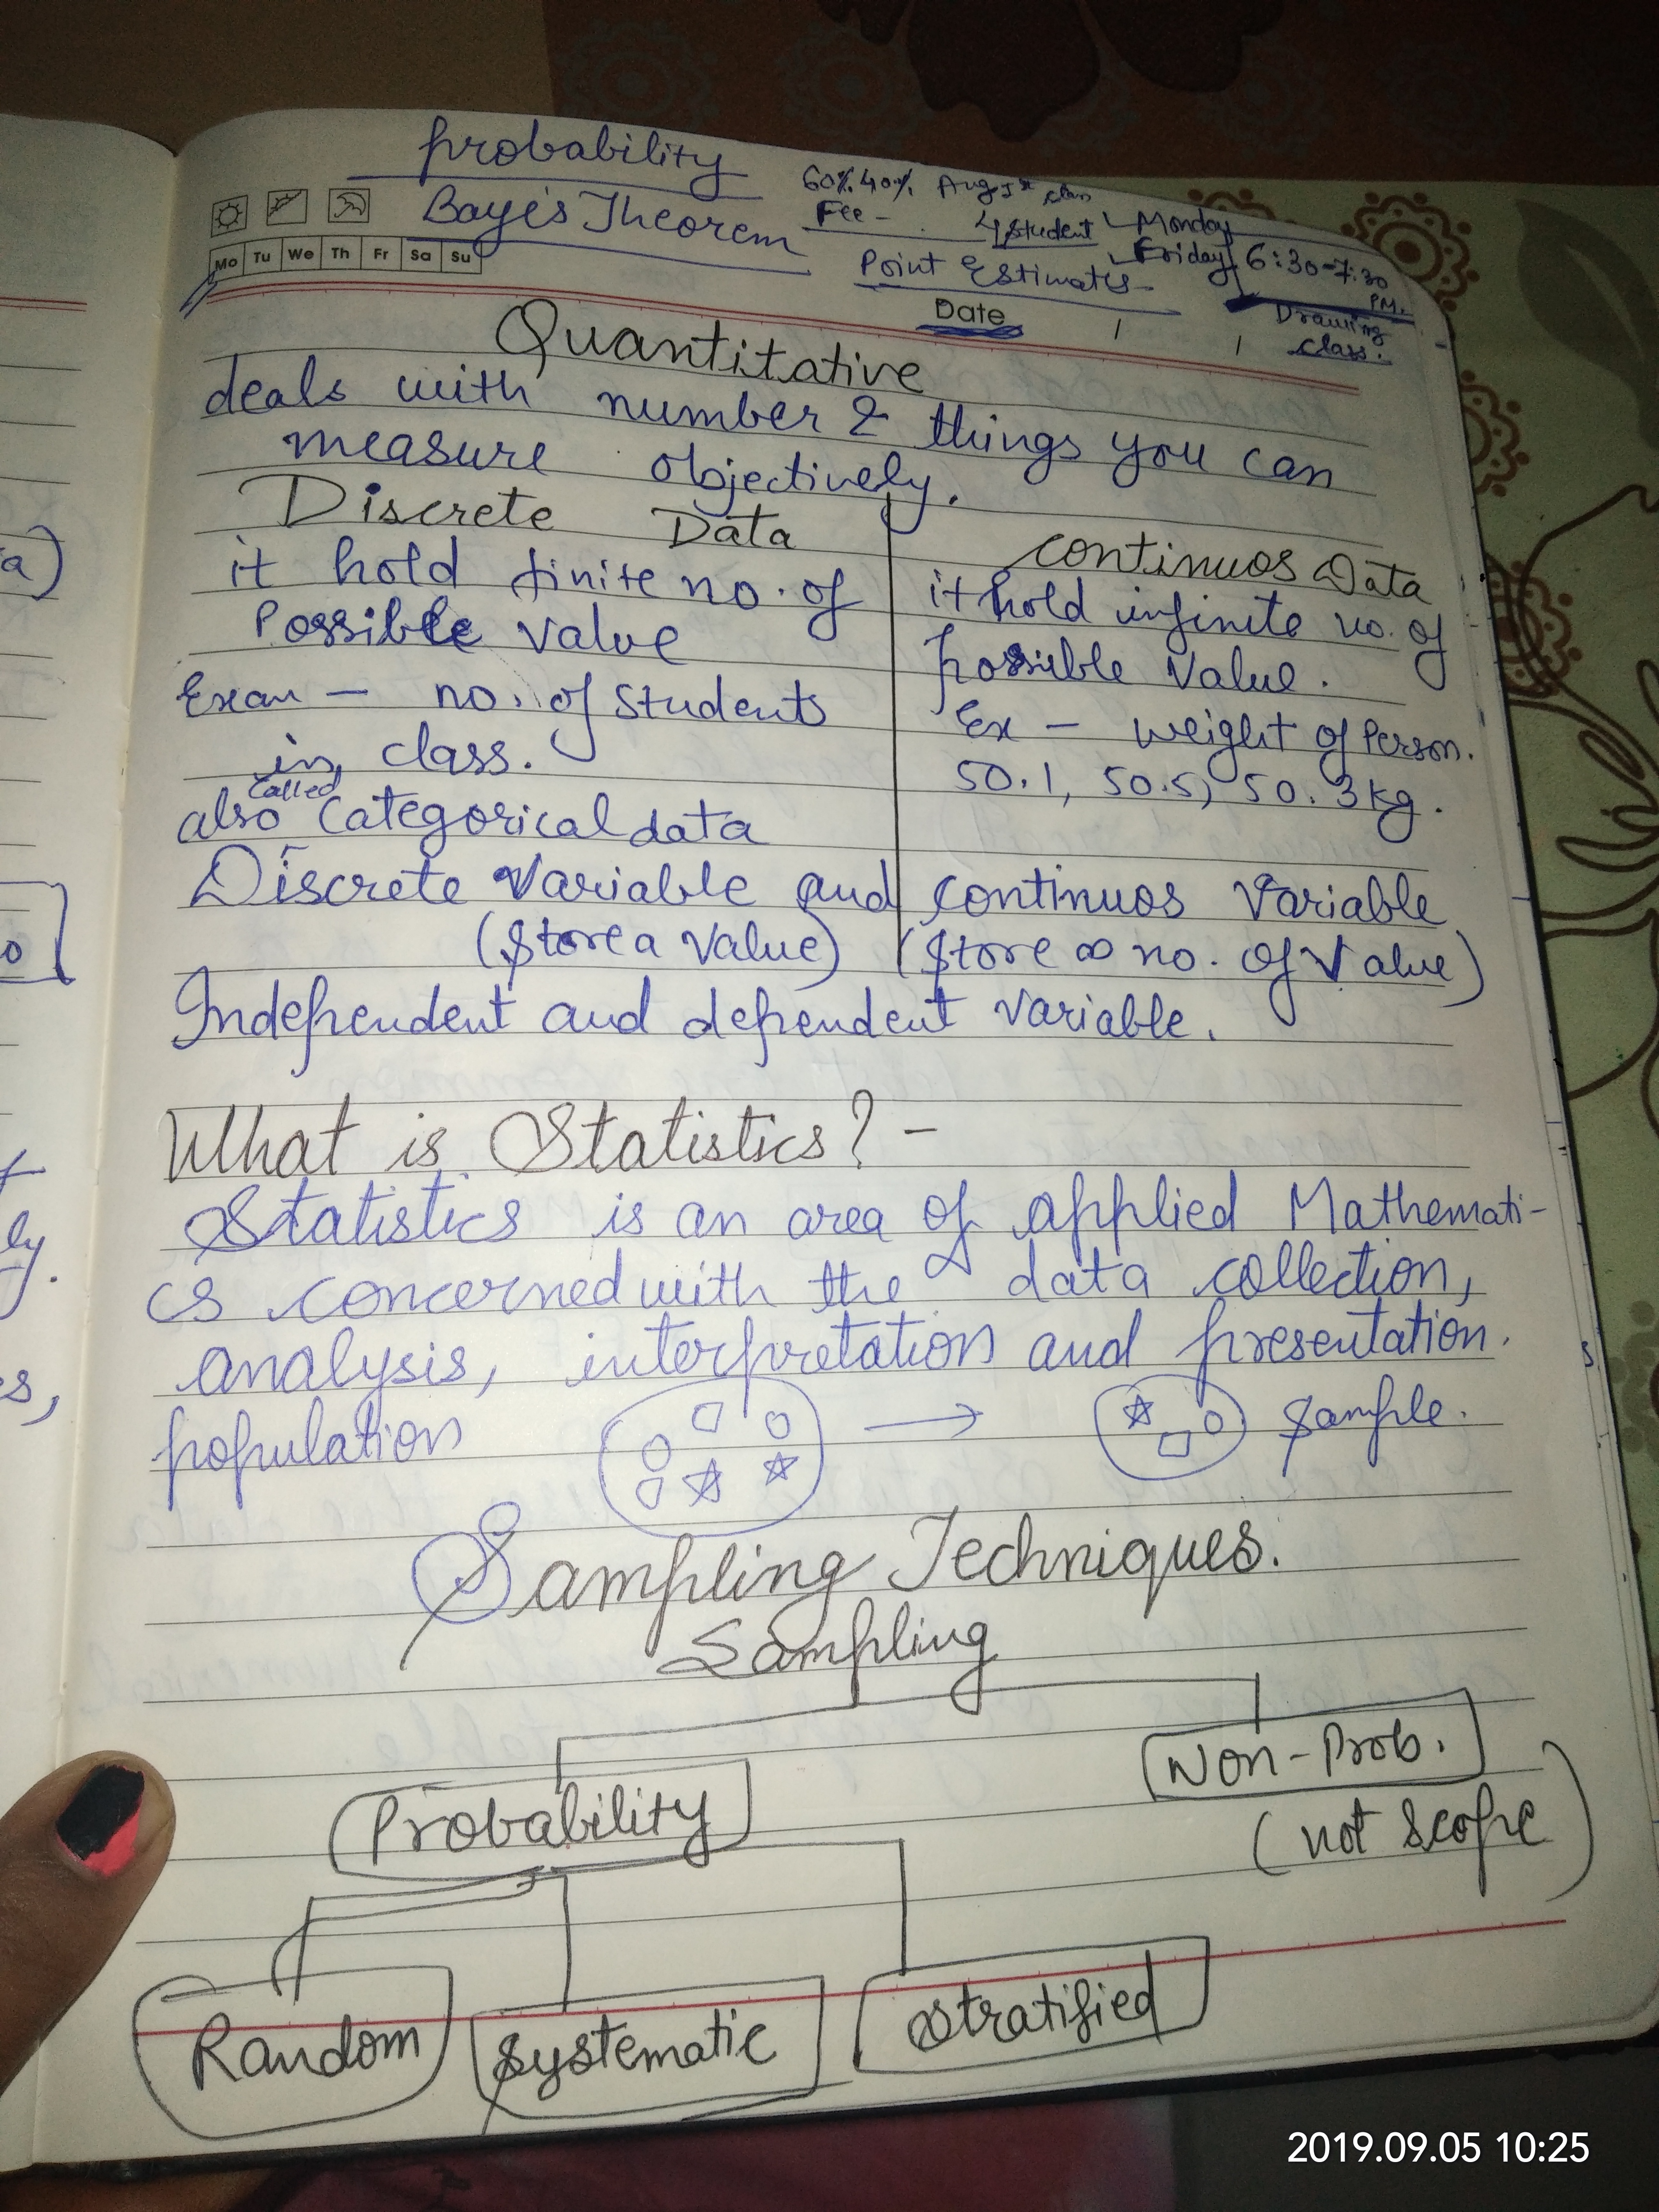 probability
Baye's Theorem
60%. 40%. Aug 1st class
Fee -
4 student Monday
Friday 6:30-7:30 PM.
Point Estimates
Drawing class.
Mo Tu We Th Fr Sa Su
Date / /
Quantitative
deals with number & things you can
measure objectively.
Discrete Data
it hold finite no. of
Possible value
Exam - no. of students
in class.
also called categorical data
continuos Data
it hold infinite no. of
possible value.
Ex - weight of Person.
50.1, 50.5, 50.3 kg.
Discrete variable and continuos variable
(store a value) (store ∞ no. of value)
Independent and dependent variable.
What is Statistics? -
Statistics is an area of applied Mathemati-
cs concerned with the data collection,
analysis, interpretation and presentation.
population → sample.
Sampling Techniques.
Sampling
Probability
Non-Prob.
(not scope)
Random
systematic
stratified
a)
ly.
s,
2019.09.05 10:25